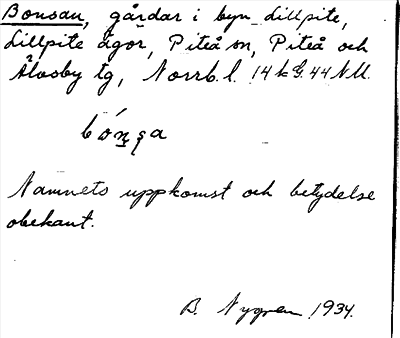 Bonsan, gårdar i byn Lillpite,
Lillpite ägor, Piteå sn, Piteå och
Älvsby tg, Norrb. l. 14 k G. 44 NU.
bónsa
Namnets uppkomst och betydelse
obekant.
B. Nygren 1934.